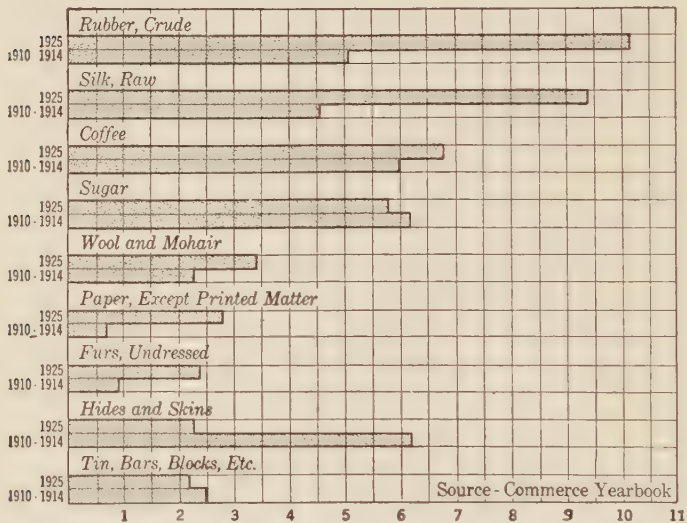 Rubber, Crude
1925
1910 1914
Silk, Raw
1925
1910-1914
Coffee
1925
1910-1914
Sugar
1925
1910-1914
Wool and Mohair
1925
1910-1914
Paper, Except Printed Matter
1925
1910-1914
Furs, Undressed
1925
1910-1914
Hides and Skins
1925
1910-1914
Tin, Bars, Blocks, Etc.
1925
1910-1914
Source-Commerce Yearbook
1 2 3 4 5 6 7 8 9 10 11